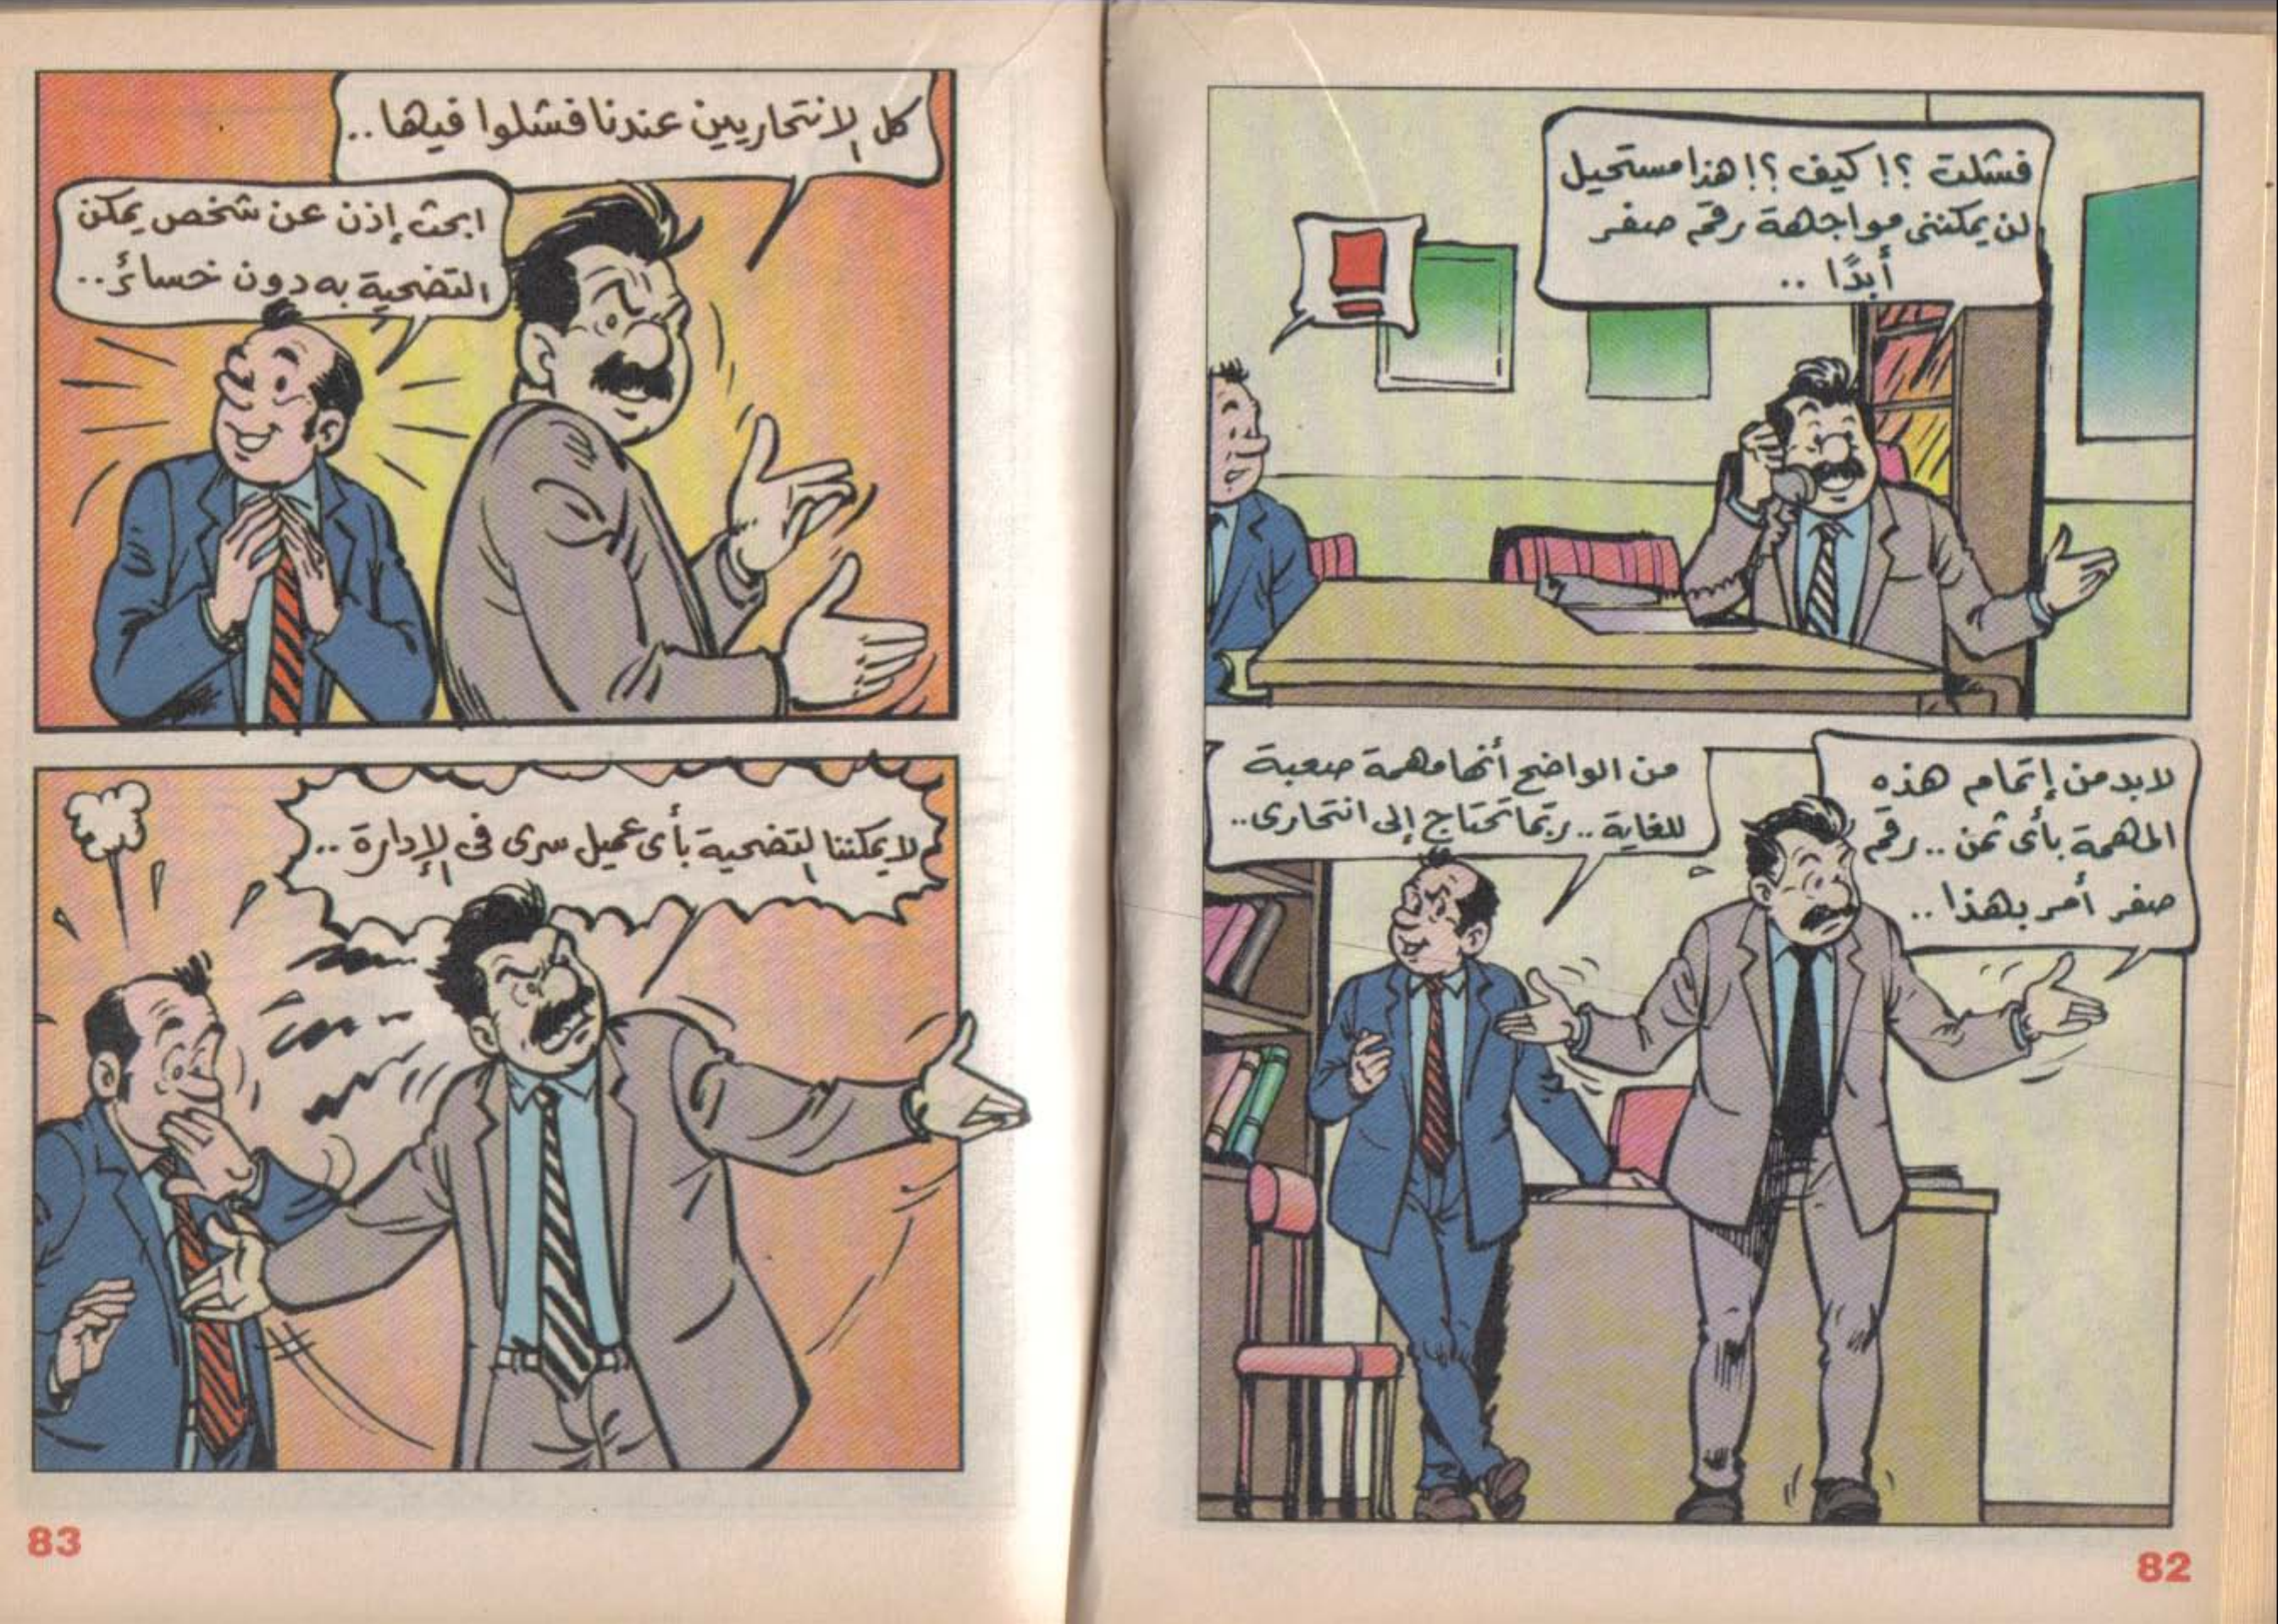 فشلت ؟! كيف ؟! هذا مستحيل
لن يمكننى مواجهة رقم صفر
أبدًا ..
!
لابد من إتمام هذه
المهمة بأى ثمن .. رقم
صفر أمر بهذا ..
من الواضح أنها مهمة صعبة
للغاية .. ربما تحتاج إلى انتحارى ..
82
كل الانتحاريين عندنا فشلوا فيها ..
ابحث إذن عن شخص يمكن
التضحية به دون خسائر ..
لا يمكننا التضحية بأى عميل سرى فى الإدارة ..
83